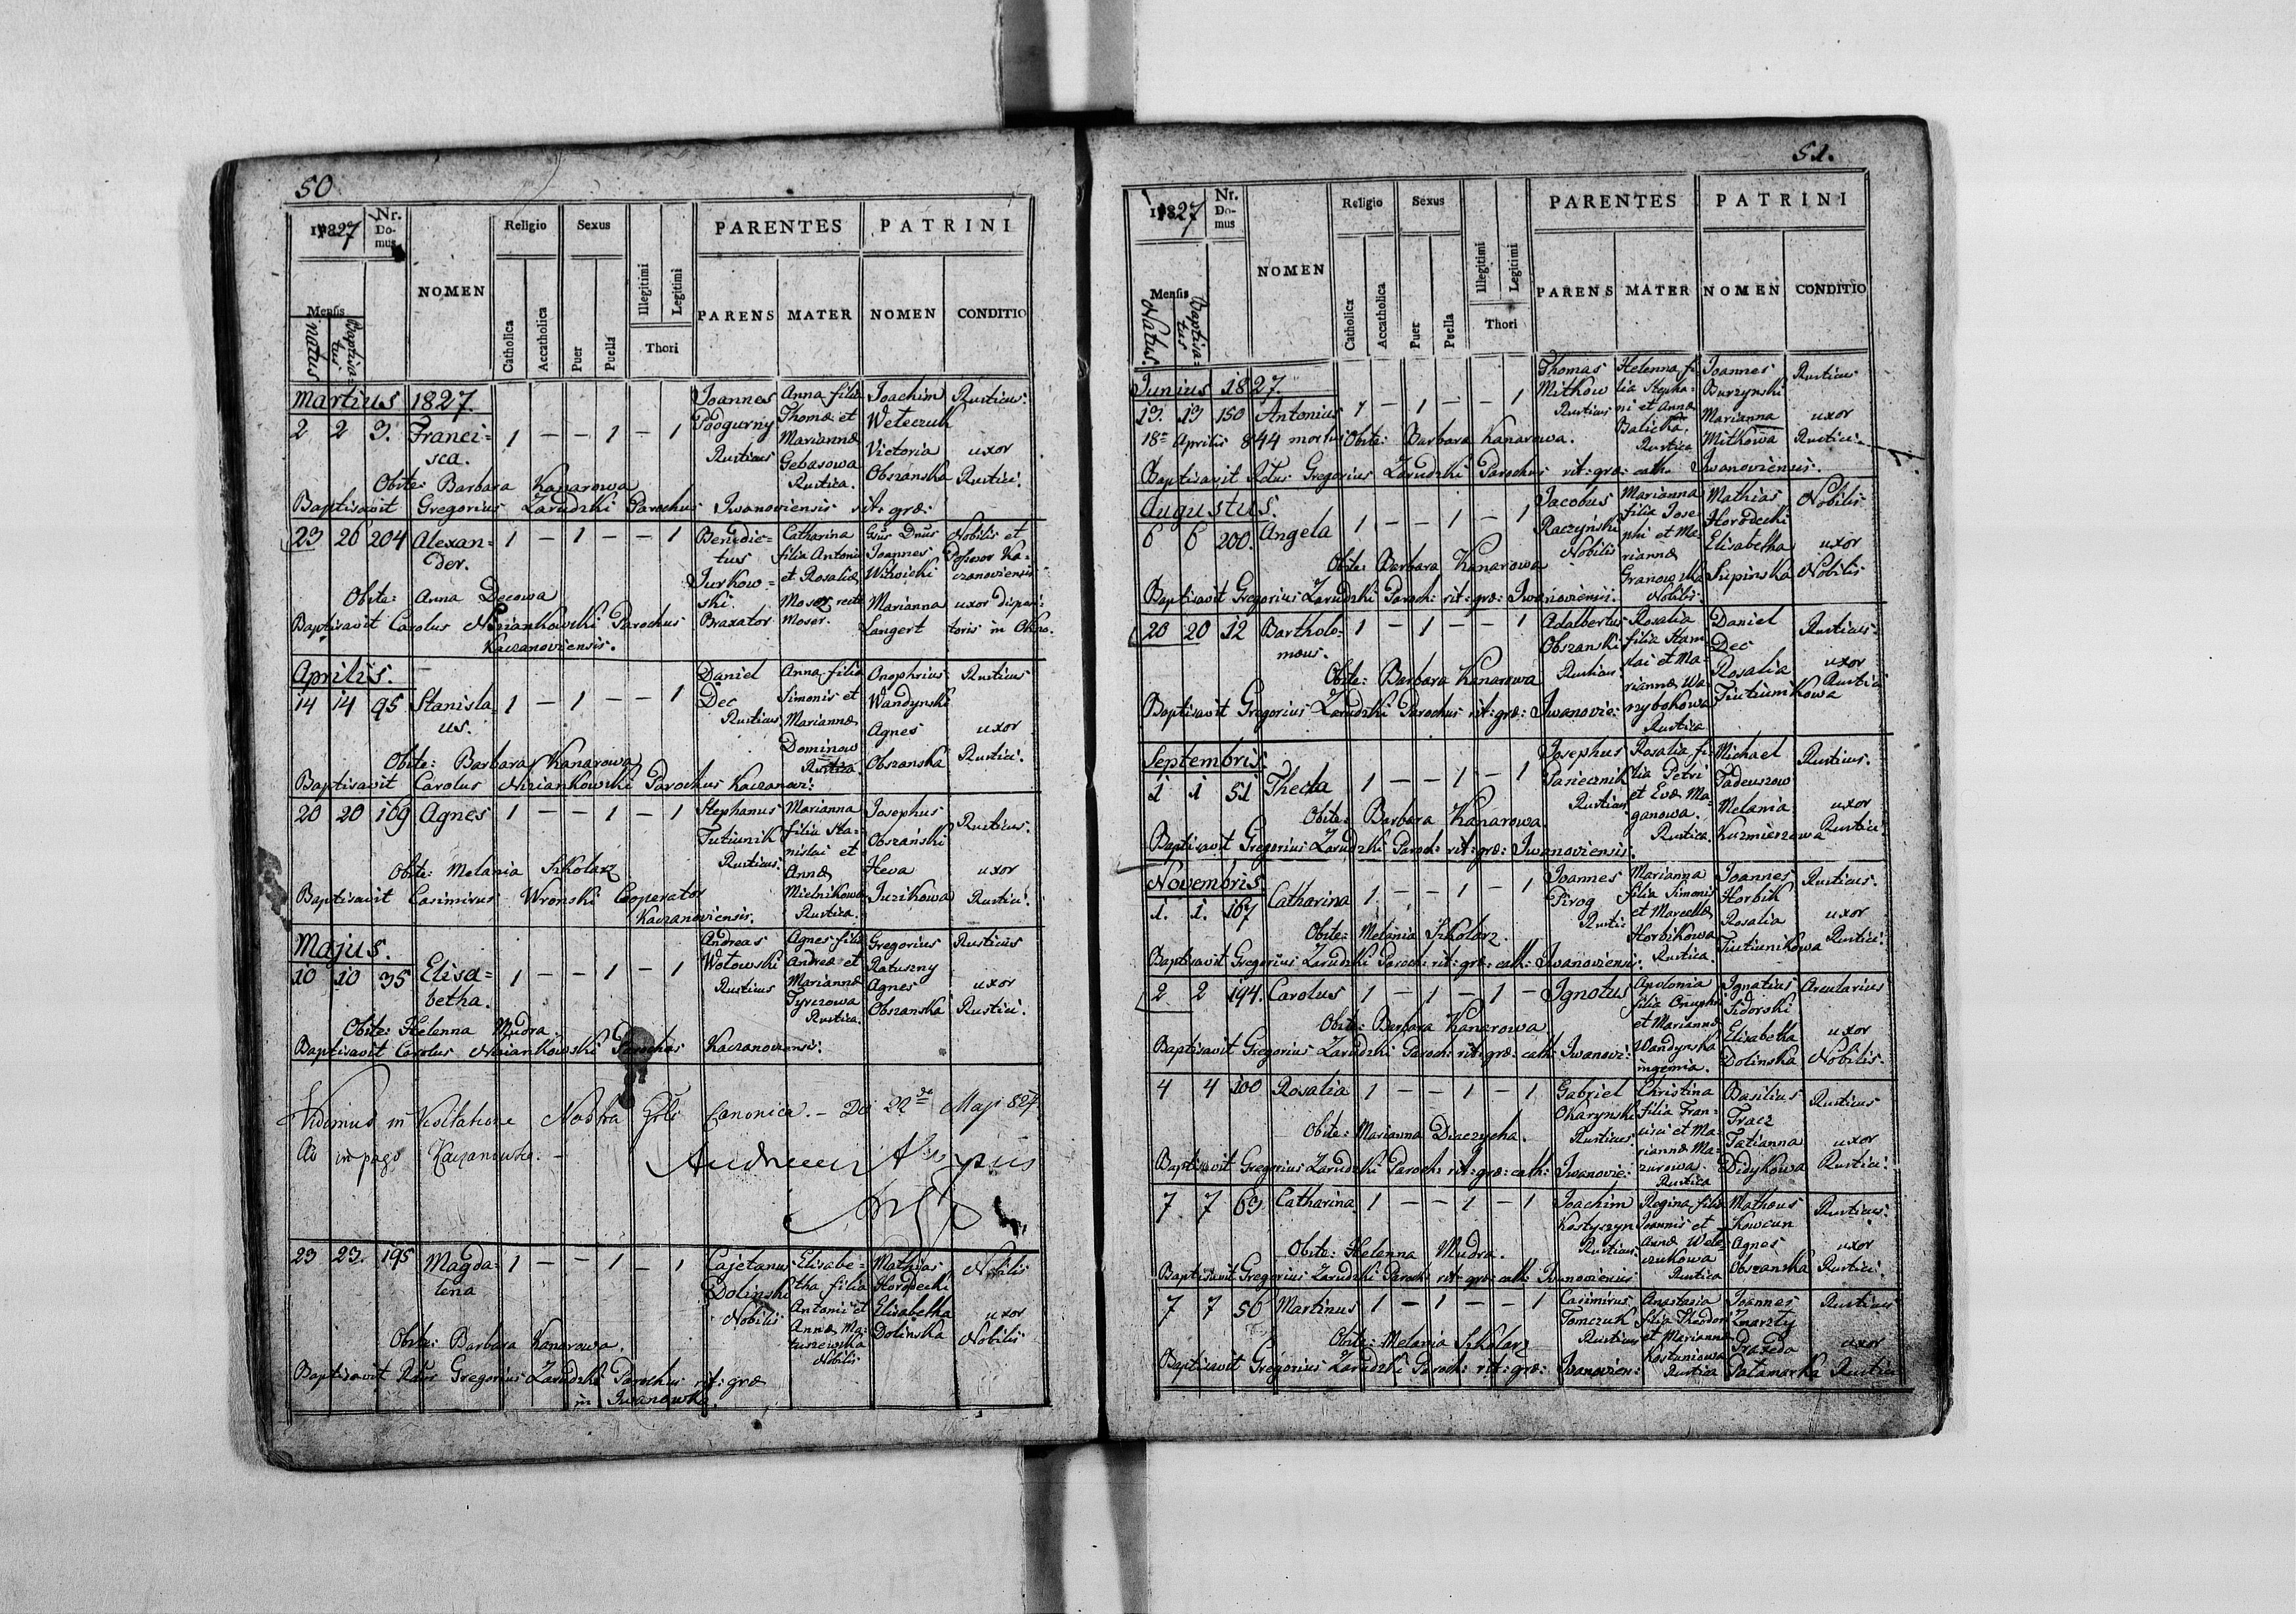 50
1827
Nr. Domus
NOMEN
Religio
Sexus
PARENTES
PATRINI
Mensis
Natus
Baptisatus
Catholica
Accatholica
Puer
Puella
Illegitimi
Legitimi
Thori
PARENS
MATER
NOMEN
CONDITIO
Martius 1827.
2 2 3. Francisca. 1 — — 1 — 1
Joannes Podgurny Rusticus
Anna filia Thomæ et Mariannæ Gebasowa Rustica.
Joachim Weteczuk
Rusticus.
Victoria Obszanska
uxor Rustici.
Obste: Barbara Kanarowa
Baptisavit Gregorius Zarudzki Parochus Iwanoviensis rit: græ:
23 26 204 Alexander. 1 — 1 — — 1
Benedictus Jurkowski. Braxator
Catharina filia Antoni et Rosaliæ Moser recte Moser.
Joannes Witwicki
Nobilis et Possor Kaczanoviensis
Marianna Langert
uxor
Obste: Anna Decowa
Baptisavit Carolus Niziankowski Parochus
Kaczanoviensis.
Aprilis.
14 14 95 Stanislaus. 1 — 1 — — 1
Daniel Dec Rusticus
Anna filia Simonis et Mariannæ Dominow Rustica.
Onophrius Wandynski
Rusticus
Agnes Obszanska
uxor Rustici.
Obste: Barbara Kanarowa
Baptisavit Carolus Niziankowski Parochus Kaczanovi:
20 20 109 Agnes 1 — — 1 — 1
Stephanus Tutiunik Rusticus.
Marianna filia Stanislai et Annæ Mielnikowa Rustica.
Josephus Obszański
Rusticus.
Heva Juzikowa
uxor Rustici.
Obste: Melania Szkolarz
Baptisavit Casimirus Wronski Cooperator
Kaczanoviensis.
Majus.
10 10 35 Elisabetha. 1 — — 1 — 1
Andreas Wotowski Rusticus
Agnes filia Andreæ et Mariannæ Tyrczowa Rustica.
Gregorius Ratuszny
Rusticus
Agnes Obszanska
uxor Rustici.
Obste: Helenna Mudra.
Baptisavit Carolus Niziankowski Parochus Kaczanoviensis.
Vidimus in Visitatione Nostra Canonica. — 22 Maji 827
in pago Kaczanowka. —
23 23. 195 Magdalena 1 — — 1 — 1
Cajetanus Dolinski Nobilis
Elisabetha filia Antonii et Annæ Matuszewska Nobilis
Mathias Horodecki
Nobilis
Elisabetha Dolinska
uxor Nobilis
Obste: Barbara Kanarowa.
Baptisavit Gregorius Zarudzki Parochus rit: græ
in Iwanowka.
51.
1827
Nr. Domus
NOMEN
Religio
Sexus
PARENTES
PATRINI
Mensis
Natus.
Baptisatus
Catholica
Accatholica
Puer
Puella
Illegitimi
Legitimi
Thori
PARENS
MATER
NOMEN
CONDITIO
Junius 1827.
13. 13 150 Antonius 1 — 1 — — 1
Thomas Mitkow Rusticus
Helenna filia Stephani et Annæ Balicka. Rustica
Joannes Burzynski
Rusticus
Marianna Mitkowa
uxor Rustici.
18 Aprilis 844 Obste: Barbara Kanarowa.
Baptisavit Gregorius Zarudzki Parochus rit: græ: cath: Iwanoviensis.
Augustus.
6 6 200. Angela 1 — — 1 — 1
Jacobus Raczyński Nobilis
Marianna filia Josephi et Mariannæ Granowska Nobilis.
Mathias Horodecki
Nobilis
Elisabetha Supinska
uxor Nobilis
Obste: Barbara Kanarowa
Baptisavit Gregorius Zarudzki Paroch: rit: græ: Iwanoviensi.
20 20 12 Bartholomæus. 1 — 1 — — 1
Adalbertus Obszanski Rusticus
Rosalia filia Stanislai et Mariannæ Wazybokowa Rustica
Daniel Dec
Rusticus
Rosalia Tiutiunikowa
uxor Rustici
Obste: Barbara Kanarowa
Baptisavit Gregorius Zarudzki Parochus rit: græ: Iwanovie:
Septembris.
1 1 51 Thecla 1 — — 1 — 1
Josephus Pasiecznik Rusticus
Rosalia filia Petri et Evæ Maganowa. Rustica.
Michael Tadeuszow
Rusticus.
Melania Kuzmierzowa
uxor Rustici.
Obste: Barbara Kanarowa
Baptisavit Gregorius Zarudzki Paroch: rit: græ: Iwanoviensis.
Novembris
1. 1. 167 Catharina 1 — — 1 — 1
Joannes Pirog Rusti:
Marianna filia Simonis et Marcellæ Horbikowa Rustica.
Joannes Horbik
Rusticus.
Rosalia Tiutiunikowa
uxor Rustici.
Obste: Melania Szkolarz.
Baptisavit Gregorius Zarudzki Paroch: rit: græ: cath: Iwanoviensis.
2 2 194. Carolus 1 — 1 — 1 —
Ignotus
Apolonia filia Onuphri et Mariannæ Wandynska ingenia.
Ignatius Sidorski
Arcularius
Elisabetha Dolinska
uxor Nobilis.
Obste: Barbara Kanarowa
Baptisavit Gregorius Zarudzki Paroch: rit: græ: cath: Iwanovi:
4 4 100 Rosalia 1 — — 1 — 1
Gabriel Okarynski Rusticus
Christina filia Francisci et Mariannæ Mazurowa. Rustica
Basilius Tracz
Rusticus
Tatianna Didykowa
uxor Rustici.
Obste: Marianna Diaczycha.
Baptisavit Gregorius Zarudzki Paroch: rit: græ: cath: Iwanovie:
7 7 69 Catharina 1 — — 1 — 1
Joachim Kostyszyn Rusticus.
Regina filia Joannis et Annæ Weteczukowa Rustica
Mathæus Kowcun
Rusticus.
Agnes Obszanska
uxor Rustici.
Obste: Helenna Mudra.
Baptisavit Gregorius Zarudzki Paroch: rit: græ: cath: Iwanoviensis
7 7 50 Martinus 1 — 1 — — 1
Casimirus Tomczuk Rusticus
Anastasia filia Theodori et Mariannæ Kostuniowa Rustica
Joannes Zmarzty
Rusticus
Praxeda Patamarka
uxor Rustici
Obste: Melania Szkolarz
Baptisavit Gregorius Zarudzki Paroch: rit: græ: Iwanovien: